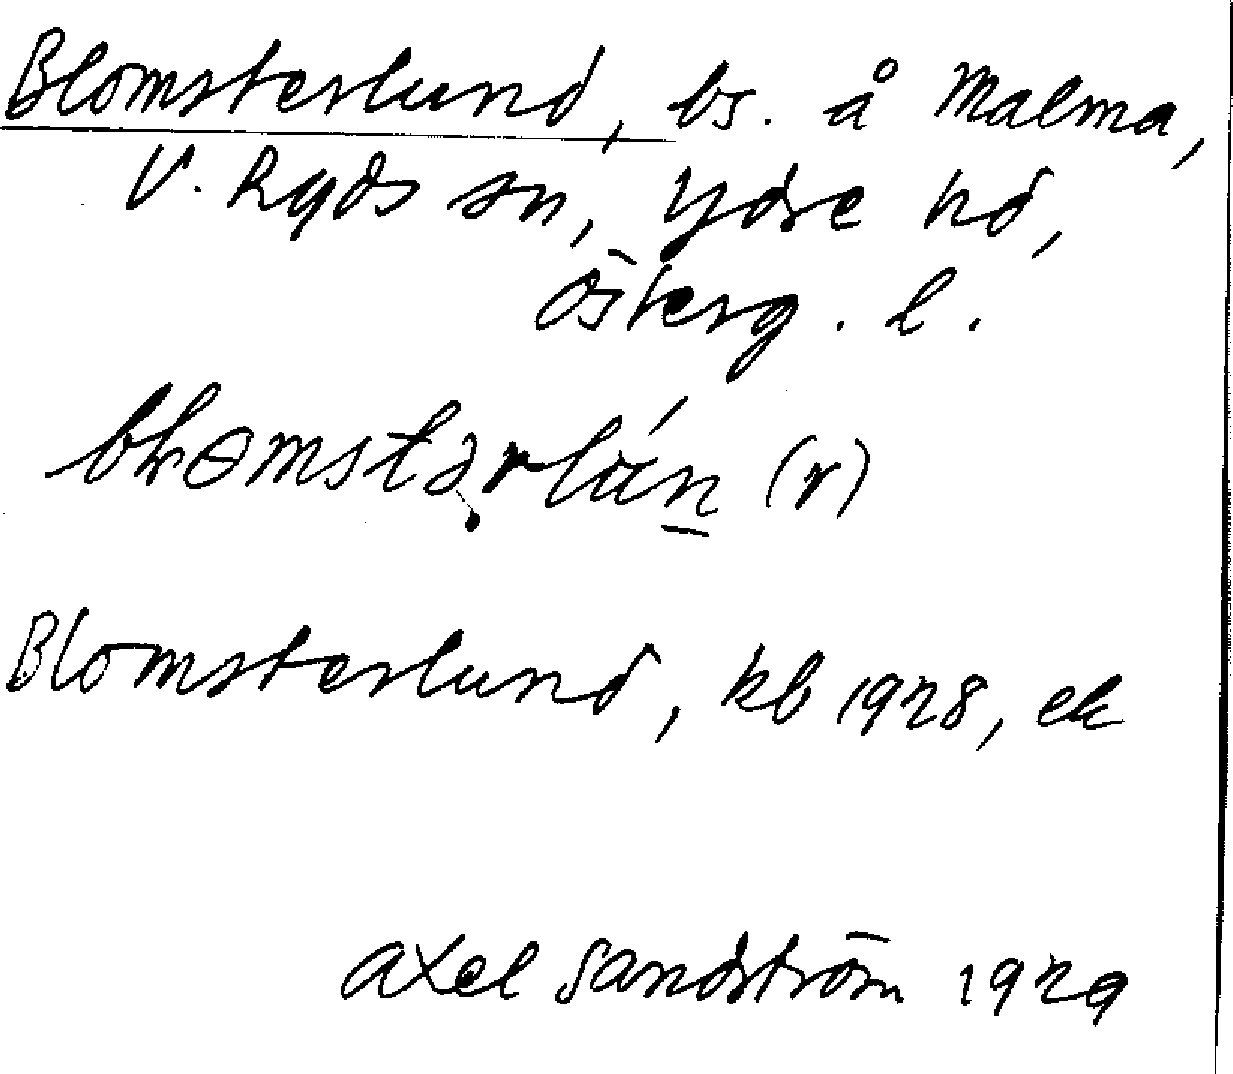 Blomsterlund, bs. å Malma,
V. Ryds sn, Ydre hd,
Österg. l.
(r)
Blomsterlund, kb 1928, ek
Axel Sandström 1929